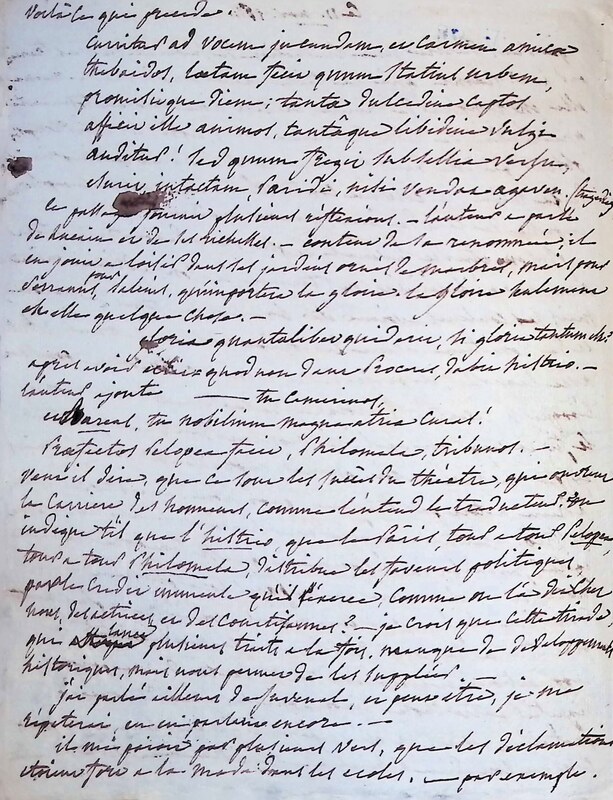 voilà ce qui precede.
Curritur ad vocem jucundam, et Carmen amicæ
thebaidos, lætam fecit quum Statius urbem,
promisitque diem; tantâ dulcedine captos
afficit ille animos, tantâque libidine vulgi
auditur! Sed quum fregit subsellia versu,
esurit, intactam Paridi, nisi vendat agaven (tragédie
ce passage fournit plusieurs réflexions. - l'auteur a parlé
de lucain et de ses richesses. - content de la renommée, il
en jouit a loisir dans ses jardins ornés de marbres, mais pour
Serranus, pour Saleius, qu'importe la gloire. la gloire seulement
est elle quelque chose. -
gloria quantalibet quid erit, si gloria tantum est?
après avoir quod non dant Proceres, dabit histrio. -
l'auteur ajoute — tu Camerinos,
et Bareas, tu nobilium magna atria curas!
Præfectos Pelopea facit, Philomela, tribunos. -
veut il dire, que ce sont les succès du théatre, qui ouvrent
la carriere des honneurs, comme l'entend le traducteur, ou
indique t'il que l'histrio, que le Pâris, tour a tour Pelopea
tour a tour Philomela, distribue les faveurs politiques,
par le credit immense qu'il exerce comme on l'a dit chez
nous, des actrices, et des courtisannes? - je crois que cette tirade,
qui lance plusieurs traits a la fois, manque de développemens
historiques, mais nous permet de les suppléer -
j'ai parlé ailleurs de Juvenal, et peut être, je me
répeterai en en parlant encore. -
il me paroit par plusieurs vers, que les déclamations
etoient fort a la mode dans les ecoles. - par exemple.